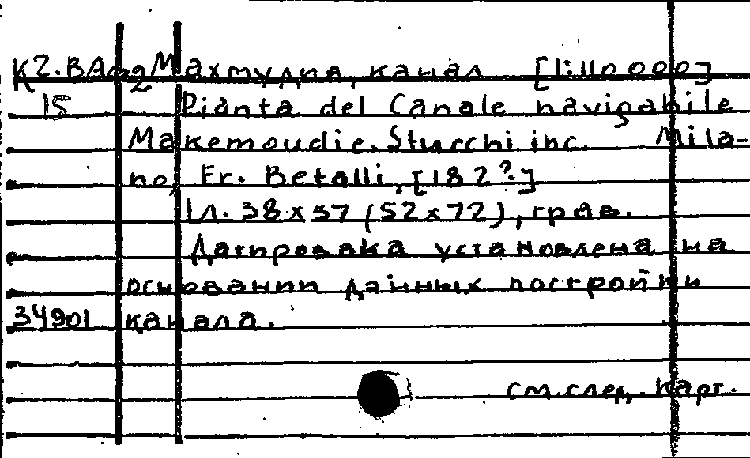 Махмудия, канал [1:110 000]
15 Pianta del Canale navigabile
Makemoudie. Stucchi inc. Mila-
no, Fr. Betalli, [182?]
1 л. 38 x 57 (52 x 72), грав.
Датировка установлена на
основании данных постройки
34901 канала.
см. след. карт.